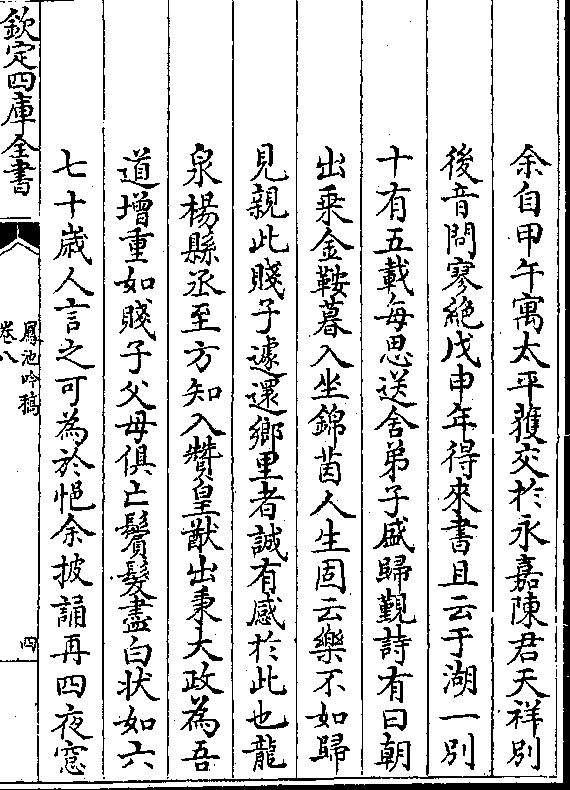 余自甲午寓太平獲交於永嘉陳君天祥别
後音問寥絶戊申年得來書且云于湖一别
十有五載每思送舍弟子盛歸覲詩有曰朝
出乗金鞍暮入坐錦茵人生固云樂不如歸
見親此賤子遽還鄉里者誠有感於此也龍
泉楊縣丞至方知入贊皇猷出秉大政為吾
道增重如賤子父母俱亡鬢髮盡白状如六
七十歲人言之可為於悒余披誦再四夜窓
欽定四庫全書
鳳池吟稿
卷八
四